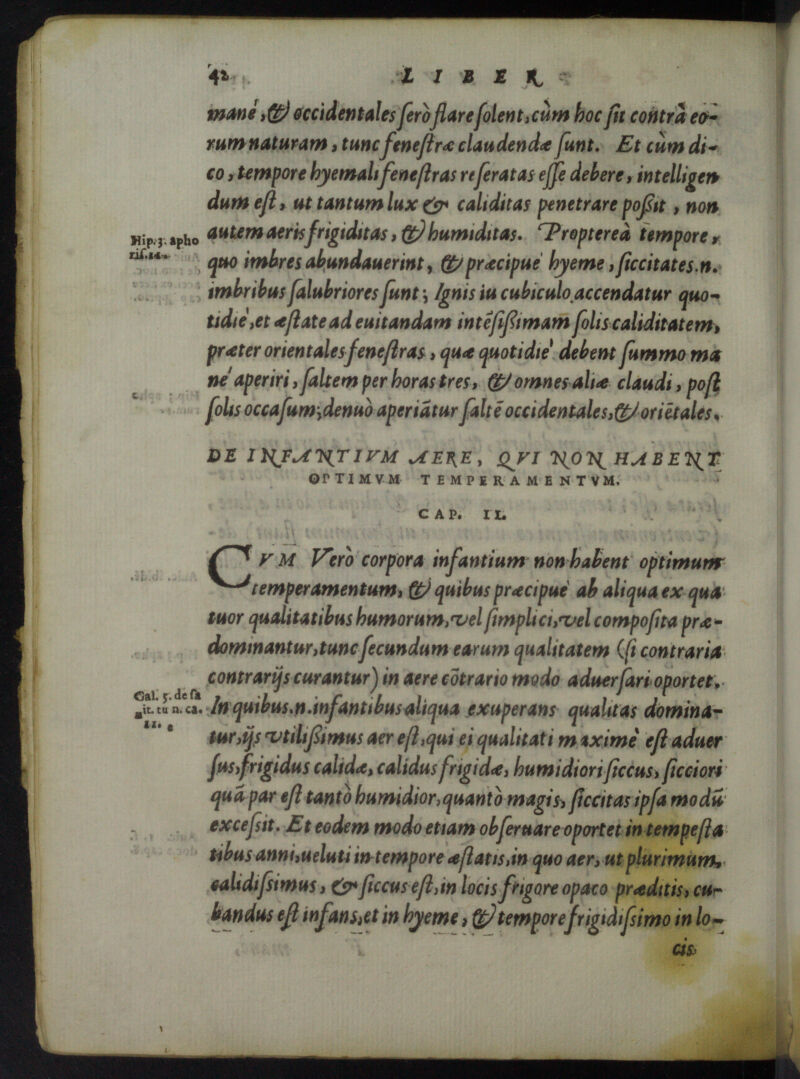 42 LIBER
mane, & occidentales sero flare solent, cùm hoc sit contrà eo-
rum naturam, tunc fenestræ claudendæ sunt. Et cùm di-
co, tempore hyemali fenestras reseratas esse debere, intelligen
dum est, ut tantum lux & caliditas penetrare possit, non
autem aeris frigiditas, & humiditas. Proptereà tempore,
quo imbres abundauerint, & præcipuè hyeme, siccitates.n.
imbribus salubriores sunt; Ignis iu cubiculo accendatur quo-
tidiè, et æstate ad euitandam intēsissimam solis caliditatem,
præter orientales fenestras, quæ quotidiè debent summo ma
nè aperiri, saltem per horas tres, & omnes aliæ claudi, post
solis occasum; denuò aperiātur saltē occidentales, & oriētales.
Hip. 3. apho
ris. 14.
DE INFANTIVM AERE, QVI NON HABENT
OPTIMVM TEMPERAMENTVM.
CAP. II.
CVM Verò corpora infantium non habent optimum
temperamentum, & quibus præcipuè ab aliqua ex qua
tuor qualitatibus humorum, vel simplici, vel composita præ-
dominantur, tunc secundum earum qualitatem (si contraria
contrarijs curantur) in aere cōtrario modo aduersari oportet.
In quibus.n. infantibus aliqua exuperans qualitas domina-
tur, ijs vtilissimus aer est, qui ei qualitati maximè est aduer
sus, frigidus calidæ, calidus frigidæ, humidiori siccus, sicciori
quā par est tantò humidior, quantò magis, siccitas ipsa modū
excessit. Et eodem modo etiam obseruare oportet in tempesta
tibus anni, ueluti in tempore æstatis, in quo aer, ut plurimùm,
calidissimus, & siccus est, in locis frigore opaco præditis, cu-
bandus est infans, et in hyeme, & tempore frigidissimo in lo-
Gal. 5. de sa
nit. tu n. ca.
11.
cis